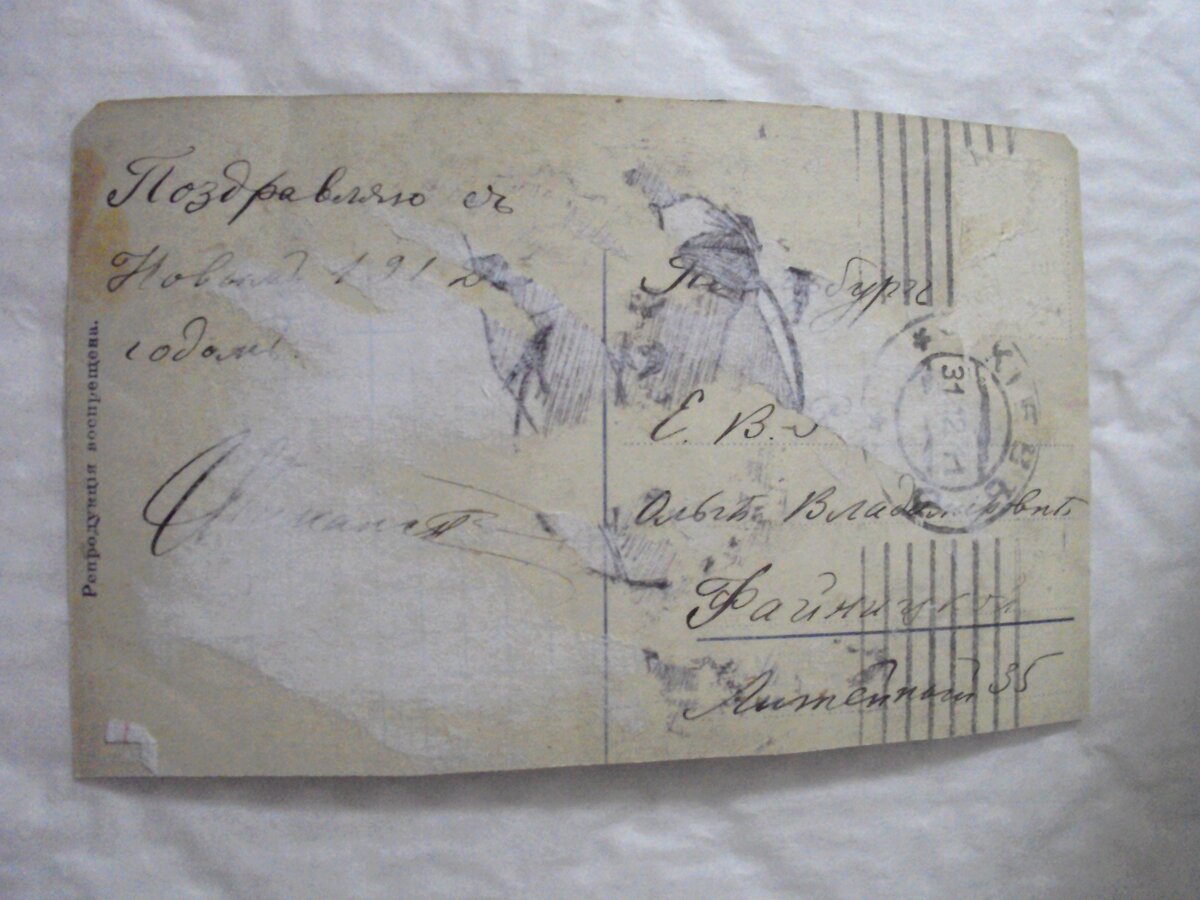 Поздравляю съ
Новымъ 1912
годомъ.
Репродукція воспрещена.
бургъ
Е. В.
Ольгѣ Владимировнѣ
Файницкой
Литейный 35
31 12 11